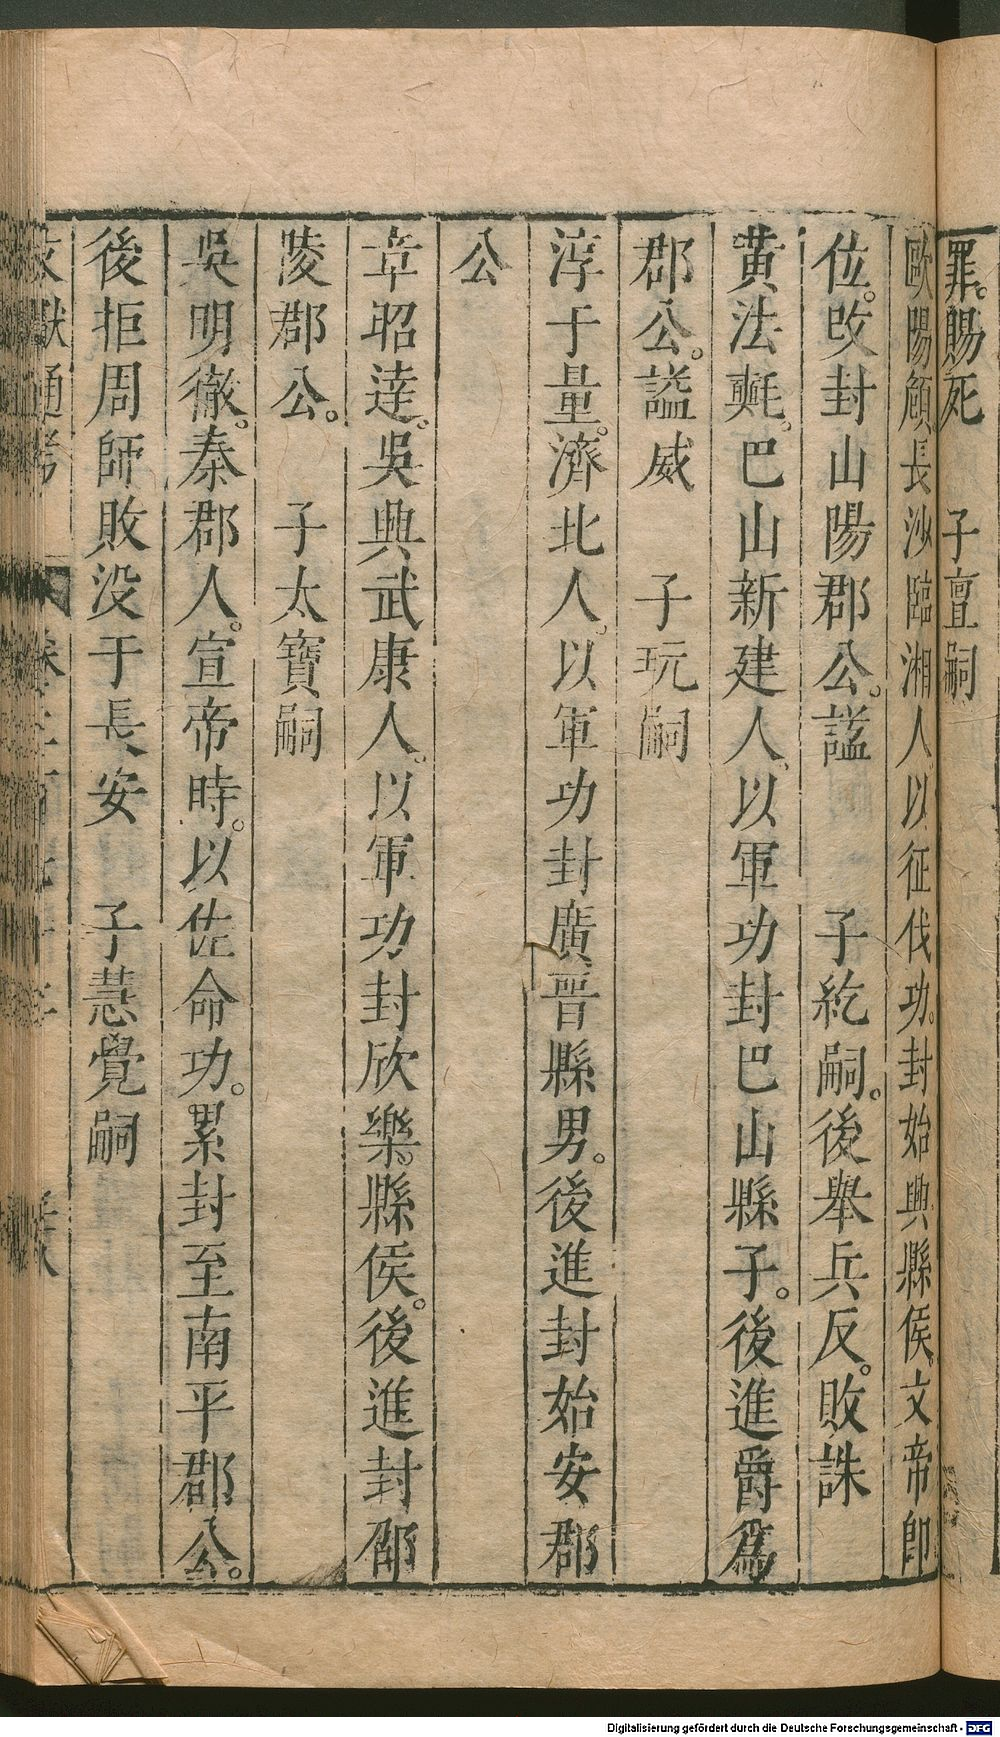 罪。賜死　子亶嗣
歐陽頠長沙臨湘人。以征伐功。封始興縣侯。文帝卽
位。改封山陽郡公。謚　子紇嗣。後舉兵反。敗誅
黃法𣰋。巴山新建人。以軍功封巴山縣子。後進爵爲
郡公。謚威　子玩嗣
淳于量。濟北人。以軍功封廣晉縣男。後進封始安郡
公
章昭達。吳興武康人。以軍功封欣樂。縣侯。後進封邵
陵郡公。　子太寶嗣
吳明徹。秦郡人。宣帝時。以佐命功。累封至南平郡公。
後拒周師敗没于長安　子慧覺嗣
文獻通考
Digitalisierung gefördert durch die Deutsche Forschungsgemeinschaft - DFG